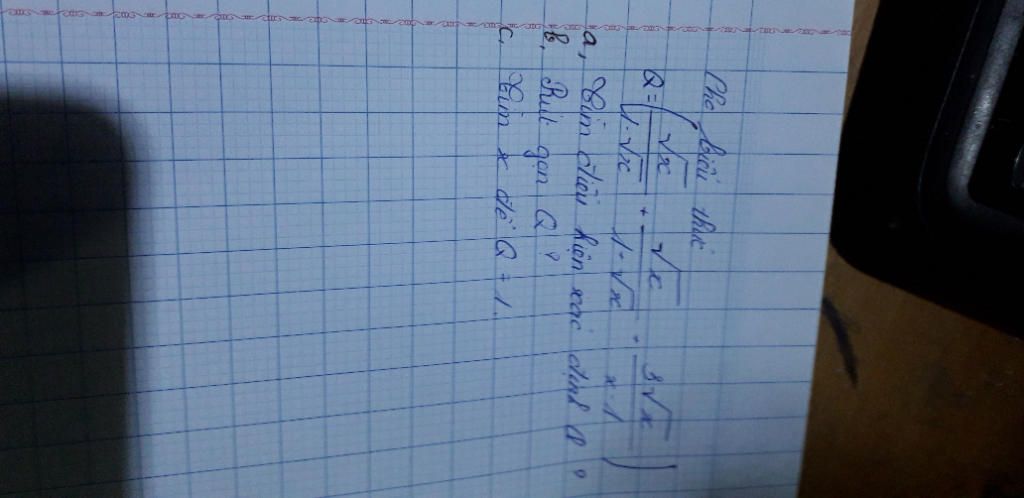 Cho biểu thức
Q = ( √x / 1 - √x + √x / 1 - √x - 3√x / x - 1 )
a, Tìm điều kiện xác định Q ?
b, Rút gọn Q ?
c, Tìm x để Q = 1.